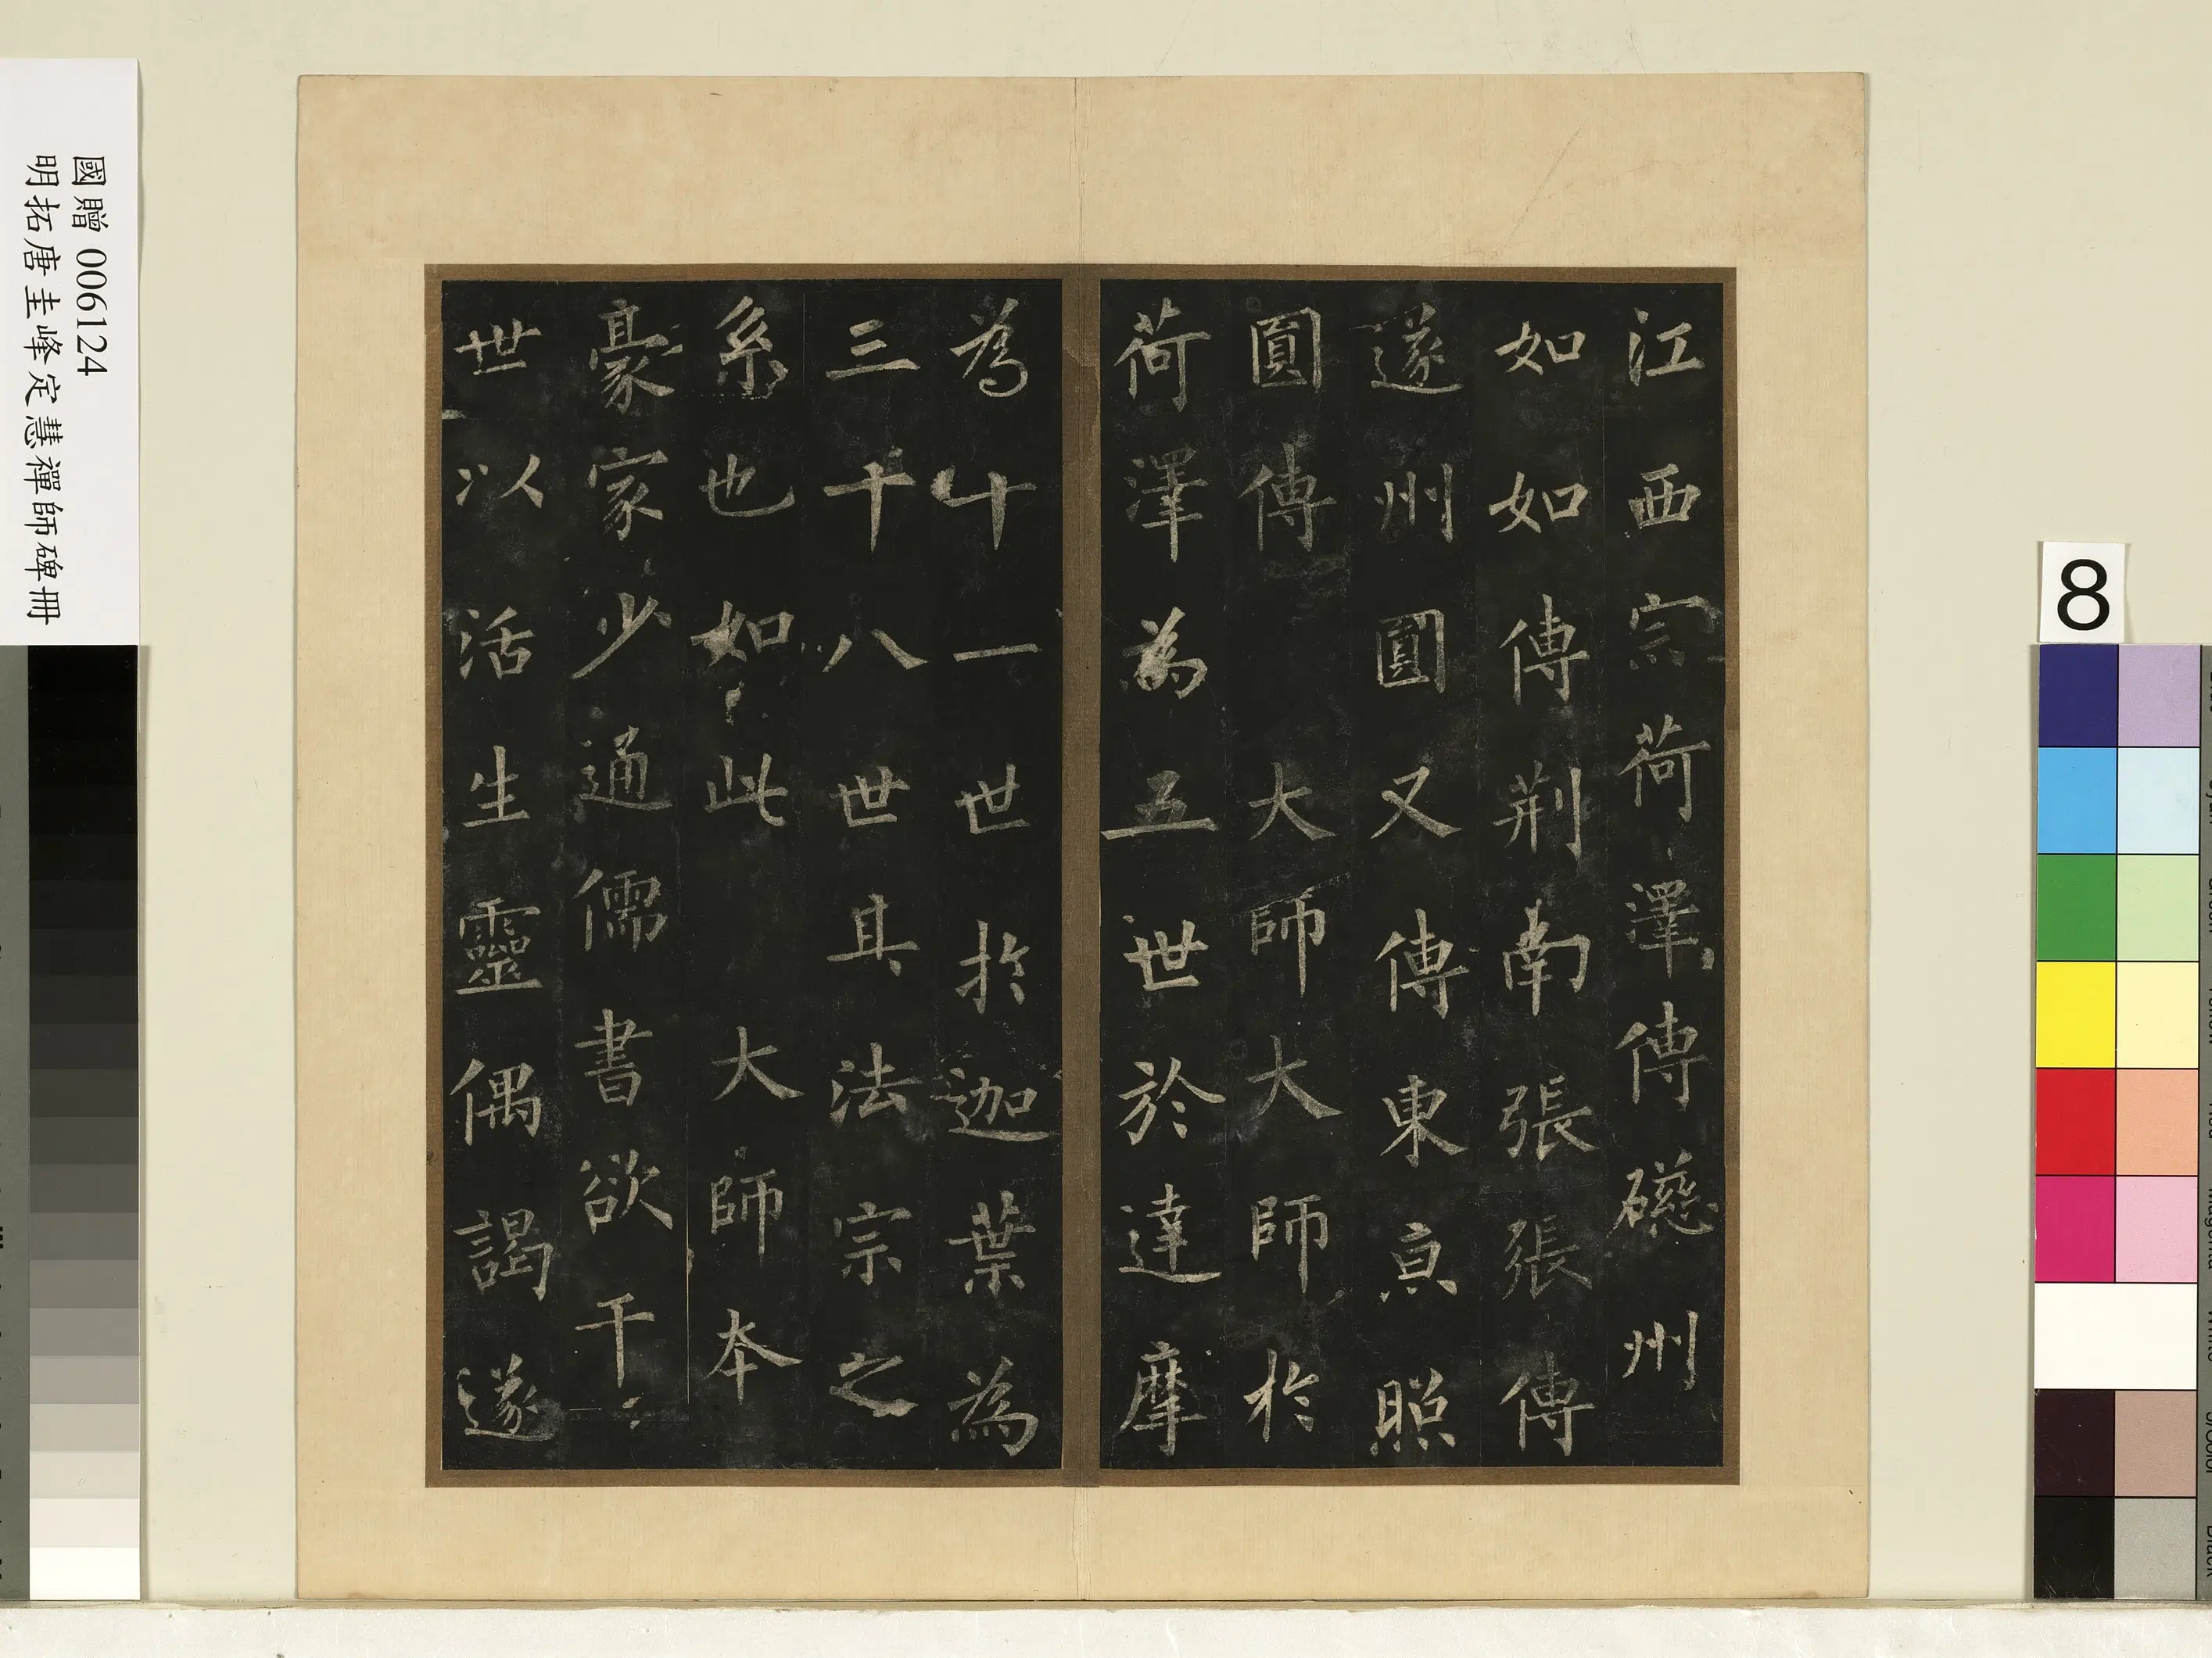 江西宗荷澤傳礠州
如如傳荆南張張傳
遂州圓又傳東京照
圓傳 大師大師於
荷澤為五世於達摩
為十一世於迦葉為
三十八世其法宗之
系也如此 大師本
豪家少通儒書欲干
世以活生靈偶謁遂
國贈 006124
明拓唐圭峰定慧禪師碑冊
8